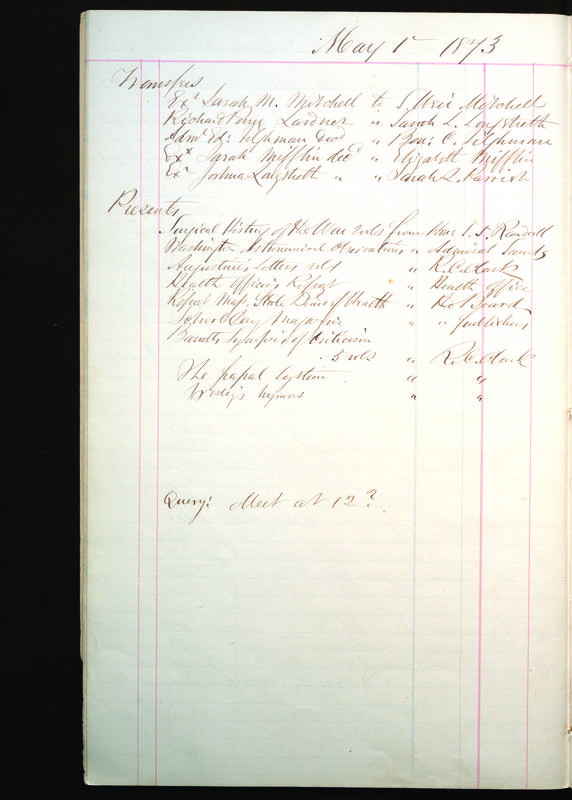 May 1st 1873
Transfers
Exr Sarah M. Mitchell to S Weir Mitchell
Richard Penn Lardner " Sarah L. Longstreth
Admr Ed: Tilghman decd " Ben: C. Tilghman
Exx Sarah Mifflin decd " Elizabeth Mifflin
Exr Joshua Longstreth " " Sarah L. Parrish
Presents
Surgical History of the War 2 vols from Hon: S. J. Randall
Washington Astronomical Observations " Admiral Sands
Augustine's Letters vols " R. C. Clark
Health officers Report " Health office
Report Mass. State Board of Health " the Board
School Day Magazine " " publishers
Synopsis of Criticism
3 vols " R. C. Clark
The papal System " "
Wesley's hymns " "
Query: Meet at 12?